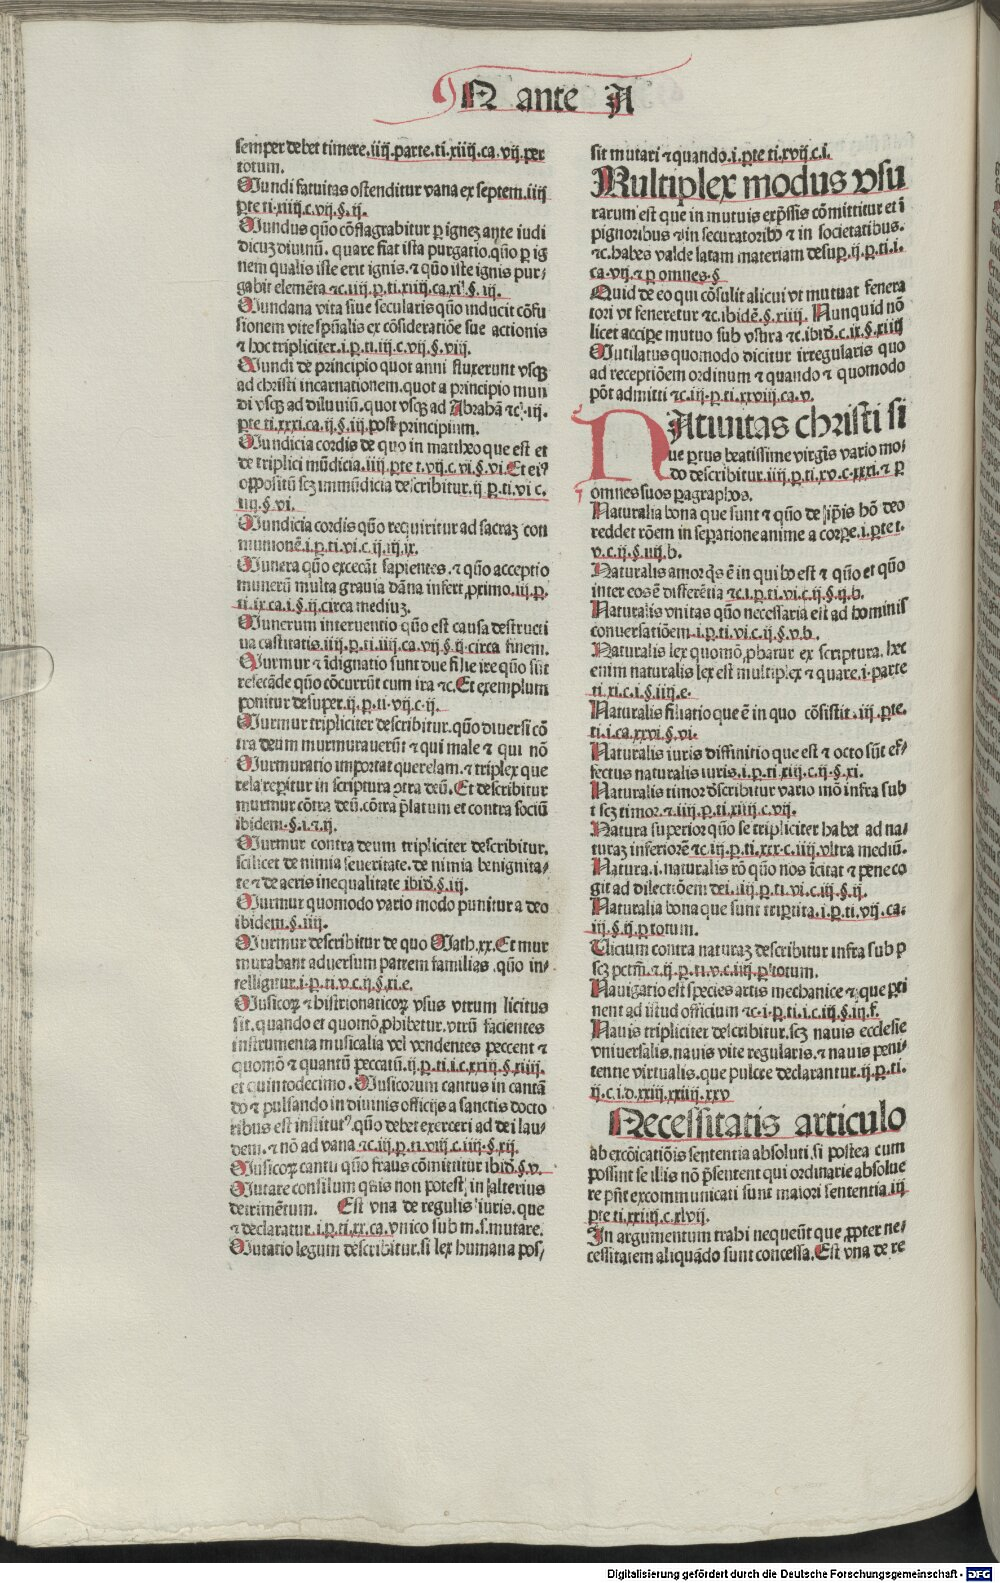 N ante A
semper debet timere.iiij.parte.ti.xiiij.ca.vij.per
totum.
Mundi fatuitas ostenditur vana ex septem.iiij
ꝑte ti.xiiij.c.vij.§.ij.
Mundus qũo cõflagrabitur ꝑ ignez ante iudi
diciuz diuinũ. quare fiat ista purgatio.qũo ꝑ ig
nem qualis iste erit ignis.⁊ qũo iste ignis pur-
gabit elemẽta ⁊c.iiij.ꝑ.ti.xiiij.ca.xi.§.iij.
Mundana vita siue secularis qũo inducit cõfu
sionem vite spũalis ex cõsideratiõe sue actionis
⁊ hoc tripliciter.i.ꝑ.ti.iij.c.vij.§.viij.
Mundi de principio quot anni fluxerunt vsqꝫ
ad christi incarnationem.quot a principio mun
di vsqꝫ ad diluuiũ.quot vsqꝫ ad Abrahã ⁊c.iij.
ꝑte ti.xxxi.ca.ij.§.iij.post principium.
Mundicia cordis de quo in mattheo que est et
de triplici mũdicia.iiij.ꝑte t.vij.c.vi.§.vi.Et eiꝰ
oppositũ scz immũdicia describitur.ij ꝑ.ti.vi c.
iiij.§.vi.
Mundicia cordis qũo requiritur ad sacraz com
munionẽ.i.ꝑ.ti.vi.c.ij.iij.ix.
Munera qũo excecãt sapientes.⁊ qũo acceptio
munerũ multa grauia dãna infert.primo.iij.ꝑ.
ti.ix.ca.i.§.ij.circa mediuz.
Munerum interuentio qũo est causa destructi
ua castitatis.iiij.ꝑ.ti.iiij.ca.vij.§.ij.circa finem.
Murmur ⁊ ĩdignatio sunt due filie ire qũo sũt
resecãde qũo cõcurrũt cum ira ⁊c.Et exemplum
ponitur desuper.ij.ꝑ.ti.vij.c.ij.
Murmur tripliciter describitur.qũo diuersi cõ
tra deum murmurauerũt ⁊ qui male ⁊ qui nõ
Murmuratio importat querelam.⁊ triplex que
rela reꝑitur in scriptura ꝯtra deũ.Et describitur
murmur cõtra deũ.cõtra p̃latum et contra sociũ
ibidem.§.i.⁊.ij.
Murmur contra deum tripliciter describitur.
scilicet de nimia seueritate.de nimia benignita-
te ⁊ de acris inequalitate ibid̃.§.iij.
Murmur quomodo vario modo punitur a deo
ibidem.§.iiij.
Murmur describitur de quo Math.xx.Et mur
murabant aduersum patrem familias.qũo in-
telligitur.i.ꝑ.ti.v.c.ij.§.xi.e.
Musicoꝝ ⁊ histrionaticoꝝ vsus vtrum licitus
sit.quando et quomõ ꝓhibetur.vtrũ facientes
instrumenta musicalia vel vendentes peccent ⁊
quomõ ⁊ quantũ peccatũ.ij.ꝑ.ti.i.c.xxiij.§.xiiij.
et quintodecimo.Musicorum cantus in cantã
do ⁊ pulsando in diuinis officijs a sanctis docto
ribus est instituturꝰ.qũo debet exerceri ad dei lau-
dem.⁊ nõ ad vana ⁊c.iij.ꝑ.ti.viij.c.iiij.§.xij.
Musicoꝝ cantu qũo fraus cõmittitur ibid̃.§.v.
Mutare consilum quis non potest in alterius
detrimẽtum. Est vna de regulis iuris.que
⁊ declaratur.i.ꝑ.ti.xx.ca.vnico sub m.s.mutare.
Mutatio legum describitur.si lex humana pos-
sit mutari ⁊ quando.i.ꝑte ti.xvij.c.i.
Multiplex modus vsu
rarum est que in mutuis exp̃ssis cõmittitur et ĩ
pignoribus ⁊ in securatoribꝰ ⁊ in societatibus.
⁊c.habes valde latam materiam desuꝑ.ij.ꝑ.ti.i.
ca.vij.⁊ ꝑ omnes.§
Quid de eo qui cõsulit alicui vt mutuat fenera
tori vt feneretur ⁊c.ibidẽ.§.xiiij. Nunquid nõ
licet acciꝑe mutuo sub vsura ⁊c.ibid̃.c.ix.§.xiiij
Mutilatus quomodo dicitur irregularis quo
ad receptiõem ordinum ⁊ quando ⁊ quomodo
põt admitti ⁊c.iij.ꝑ.ti.xxviij.ca.v.
NAtiuitas christi si
ue ꝑtus beatissime virgĩs vario mo-
do describitur.iiij.ꝑ.ti.xv.c.xxxi.⁊ ꝑ
omnes suos ꝑagraphos.
Naturalia bona que sunt ⁊ qũo de ip̃is hõ deo
reddet rõem in seꝑatione anime a corꝑe.i.ꝑte t.
v.c.ij.§.iiij.b.
Naturalis amor q̃s ẽ in quibꝰ est ⁊ qũo et qũo
inter eos ẽ differẽtia ⁊c.i.ꝑ.ti.vi.c.ij.§.ij.b.
Naturalis vnitas qũo necessaria est ad hominis
conuersatiõem.i.ꝑ.ti.vi.c.ij.§.v.b.
Naturalis lex quomõ ꝓbatur ex scriptura. hec
enim naturalis lex est multiplex ⁊ quare.i.parte
ti.xi.c.i.§.iiij.e.
Naturalis filiatio que ẽ in quo cõsistit.iij.ꝑte.
ti.i.ca.xxvi.§.vi.
Naturalis iuris diffinitio que est ⁊ octo sũt ef-
fectus naturalis iuris.i.ꝑ.ti.xiij.c.ij.§.xi.
Naturalis timor d̃scribitur vario mõ infra sub
t scz timor.⁊.iiij.ꝑ.ti.xiiij.c.vij.
Natura superior qũo se tripliciter habet ad na-
turaz inferiorẽ ⁊c.iij.ꝑ.ti.xxx.c.iiij.vltra mediũ.
Natura.i.naturalis rõ qũo nos ĩcitat ⁊ pene co
git ad dilectiõem dei.iiij.ꝑ.ti.vi.c.iij.§.ij.
Naturalia bona que sunt triꝑtita.i.ꝑ.ti.vij.ca.
iij.§.ij.ꝑ totum.
Uicium contra naturaz describitur infra sub p
scz pctm̃.⁊.ij.ꝑ.ti.v.c.iiij.ꝑ totum.
Nauigatio est species artis mechanice ⁊ que ꝑti
nent ad istud officium ⁊c.i.ꝑ.ti.i.c.iij.§.iij.f.
Nauis tripliciter describitur.scz nauis ecclesie
vniuersalis.nauis vite regularis.⁊ nauis peni-
tentie virtualis.que pulcre declarantur.ij.ꝑ.ti.
ij.c.i.d.xxiij.xxiiij.xxv
Necessitatis articulo
ab excõicatiõis sententia absoluti.si postea cum
possint se illis nõ p̃sentent qui ordinarie absolue
re pñt excommunicati sunt maiori sententia.iij
ꝑte ti.xxiiij.c.xlvij.
In argumentum trahi nequeũt que ꝓpter ne-
cessitatem aliquãdo sunt concessa.Est vna de re
Digitalisierung gefördert durch die Deutsche Forschungsgemeinschaft - DFG